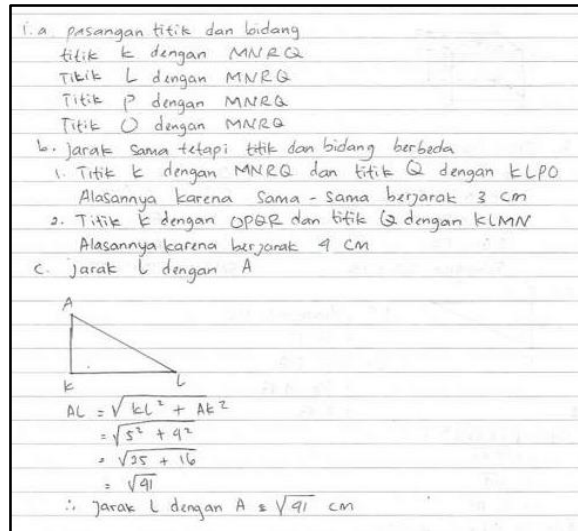 1. a. pasangan titik dan bidang
titik K dengan MNRQ
Titik L dengan MNRQ
Titik P dengan MNRQ
Titik O dengan MNRQ
b. jarak sama tetapi titik dan bidang berbeda
1. Titik K dengan MNRQ dan titik Q dengan KLPO
Alasannya karena sama - sama berjarak 3 cm
2. Titik K dengan OPQR dan titik Q dengan KLMN
Alasannya karena berjarak 4 cm
c. Jarak L dengan A
A
K L
AL = √KL² + AK²
= √5² + 4²
= √25 + 16
= √41
∴ Jarak L dengan A = √41 cm